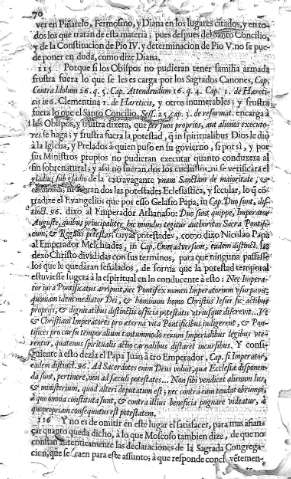 70
ver en Piñarelo, Fermosino, y Diana en los lugares citados, y en to-
dos los que tratan de esta materia; pues despues del Santo Concilio,
y de la Constitucion de Pio IV. y determinacion de Pio V. no se pue-
de poner en duda, como dize Diana.
Porque si los Obispos no pudieran tener familia armada
frustra fuera lo que se les encarga por los Sagrados Canones, Cap.
26. q. 5. Cap. Attendendum 16. q. 4. Cap. 1. de Hereti-
cis Clementina 1. de Hereticis, y otros innumerables; y frustra
fuera lo que el Santo Concilio, Sess. 25 cap. 3. de reformat. encarga à
los Obispos, y frustra dixera, que
te haga; y frustra fuera la potestad, que spiritualibus Dios le diò
à la Iglesia, y Prelados à quien puso en su govierno, si por sì, y por
sus Ministros propios no pudieran executar quanto conduzera al
fin sobrenatural; y assi no fueran dos los cuchillos, ni se verificara el
de la extravagante unam Sanctam de maioritate, &
obedientia, ni fueran dos las potestades Eclesiastica, y secular, lo que con-
tradize el Evangelio; que por esso Gelasio Papa, in Cap. Duo sunt, dis-
tinct. 96. dixo al Emperador Athanasio: Duo sunt quippe, Imperator
Auguste, quibus principaliter, hic mundus regitur authoritas Sacra Pontifi-
cum, & Regalis potestas; cuyas potestades, como dixo Nicolao Papa
al Emperador Melchiades, in Cap. Cum ad verum, eadem distinct. las
dexò Christo divididas con sus terminos, para que ninguna passasse
los que le quedaran señalados, de forma que la potestad temporal
estuviesse sugeta à la espiritual en lo conducente à esto: Nec Impera-
tor iura Pontificatus arripuit, nec Pontifex nomen Imperatorum usurpavit;
quoniam idem mediator Dei, & hominum homo Christus Iesus sic actibus
proprijs, & dignitatibus distinctis officia potestatis utriusque discrevit...Ut
& Christiani Imperatores pro æterna vita Pontificibus indigerent, & Pon-
tifices pro cursu temporalium tantummodo rerum Imperialibus legibus ute-
rentur, quatenus spiritualis actio carnalibus distaret incursibus. Y consi-
guiente à esto dezia el Papa Juan à otro Emperador, Cap. si Imperator,
eadem distinct. 96. Ad Sacerdotes enim Deus voluit, quæ Ecclesiæ disponen-
da sunt, pertinere, non ad sæculi potestates...Non sibi vendicet alienum ius,
& ministerium, quod alteri deputatum est; nec contra eum tendat abrumpi,
à quo omnia constituta sunt, & contra illius beneficia pugnare videatur, à
quo propriam consequutus est potestatem.
116 Y no es de omitir en este lugar el satisfacer, para mas afian-
çar quanto queda dicho, à lo que Moscoso tambien dize, de que no
constan autenticamente las declaraciones de la Sagrada Congrega-
cion, que se traen para este assunto; à que responde concl. vétemen-